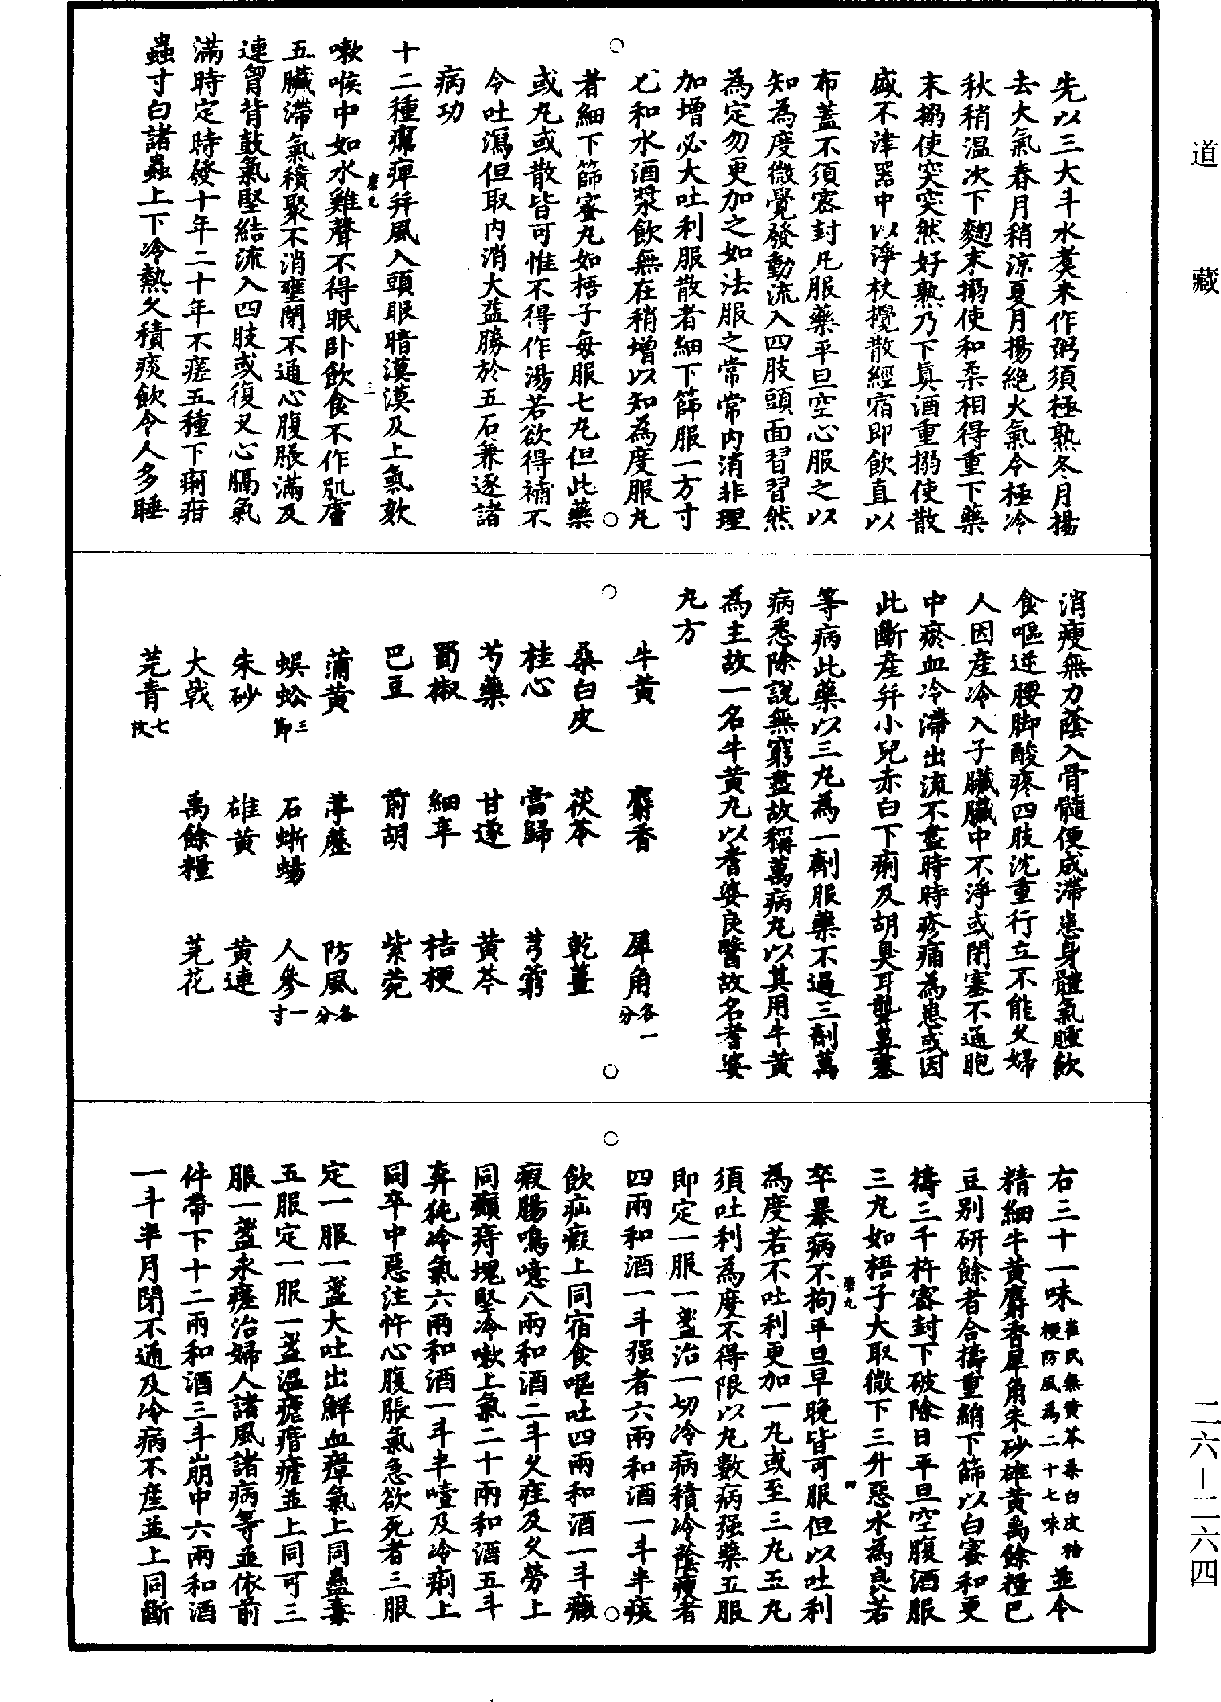 道藏
先以三大斗水煮米作粥須極熟冬月揚
去大氣春月稍涼夏月揚絕火氣令極冷
秋稍溫次下麴末搦使和柔相得重下藥
末搦使突突然好熟乃下真酒重搦使散
盛不津器中以淨杖攪散經宿即飲直以
布蓋不須密封凡服藥平旦空心服之以
知為度微覺發動流入四肢頭面習習然
為定勿更加之如法服之常常內消非理
加增必大吐利服散者細下篩服一方寸
匕和水酒漿飲無在稍增以知為度服丸
者細下篩蜜丸如梧子每服七丸但此藥
或丸或散皆可惟不得作湯若欲得補不
令吐瀉但取內消大益勝於五石兼逐諸
病功
十二種癩痺并風入頭眼暗漠漠及上氣欬
嗽喉中如水雞聲不得眠卧飲食不作肌膚
五臟滯氣積聚不消壅閉不通心腹脹滿及
連胷背鼓氣堅結流入四肢或復叉心膈氣
滿時定時發十年二十年不瘥五種下痢疳
蟲寸白諸蟲上下冷熱久積痰飲令人多睡
消瘦無力蔭入骨髓便成滯患身體氣腫飲
食嘔逆腰脚酸疼四肢沈重行立不能久婦
人因產冷入子臟臟中不淨或閉塞不通胞
中瘀血冷滯出流不盡時時疼痛為患或因
此斷產并小兒赤白下痢及胡臭耳聾鼻塞
等病此藥以三丸為一劑服藥不過三劑萬
病悉除說無窮盡故稱萬病丸以其用牛黃
為主故一名牛黃丸以耆婆良醫故名耆婆
丸方
牛黃 麝香 犀角各一分
桑白皮 茯苓 乾薑
桂心 當歸 芎藭
芍藥 甘遂 黃芩
蜀椒 細辛 桔梗
巴豆 前胡 紫菀
蒲黃 葶藶 防風各分
蜈蚣三節 石蜥蜴 人參一寸
朱砂 雄黃 黃連
大戟 禹餘糧 芫花
芫青七枚
右三十一味崔氏無黃芩桑白皮桔梗防風為二十七味並令
精細牛黃麝香犀角朱砂雄黃禹餘糧巴
豆別研餘者合擣重絹下篩以白蜜和更
擣三千杵密封下破除日平旦空腹酒服
三丸如梧子大取微下三升惡水為良若
卒暴病不拘平旦早晚皆可服但以吐利
為度若不吐利更加一丸或至三丸五丸
須吐利為度不得限以丸數病强藥五服
即定一服一盞治一切冷病積冷蔭瘦者
四兩和酒一斗强者六兩和酒一斗半痰
飲疝瘕上同宿食嘔吐四兩和酒一斗癥
瘕腸鳴噫八兩和酒二斗久疰及久勞上
同癲痔塊堅冷嗽上氣二十兩和酒五斗
奔㹠冷氣六兩和酒一斗半噎及冷痢上
同卒中惡注忤心腹脹氣急欲死者三服
定一服一盞大吐出鮮血瘴氣上同蠱毒
五服定一服一盞溫瘧瘖瘧並上同可三
服一盞永瘥治婦人諸風諸病等並依前
件帶下十二兩和酒三斗崩中六兩和酒
一斗半月閉不通及冷病不產並上同斷
二六—二六四